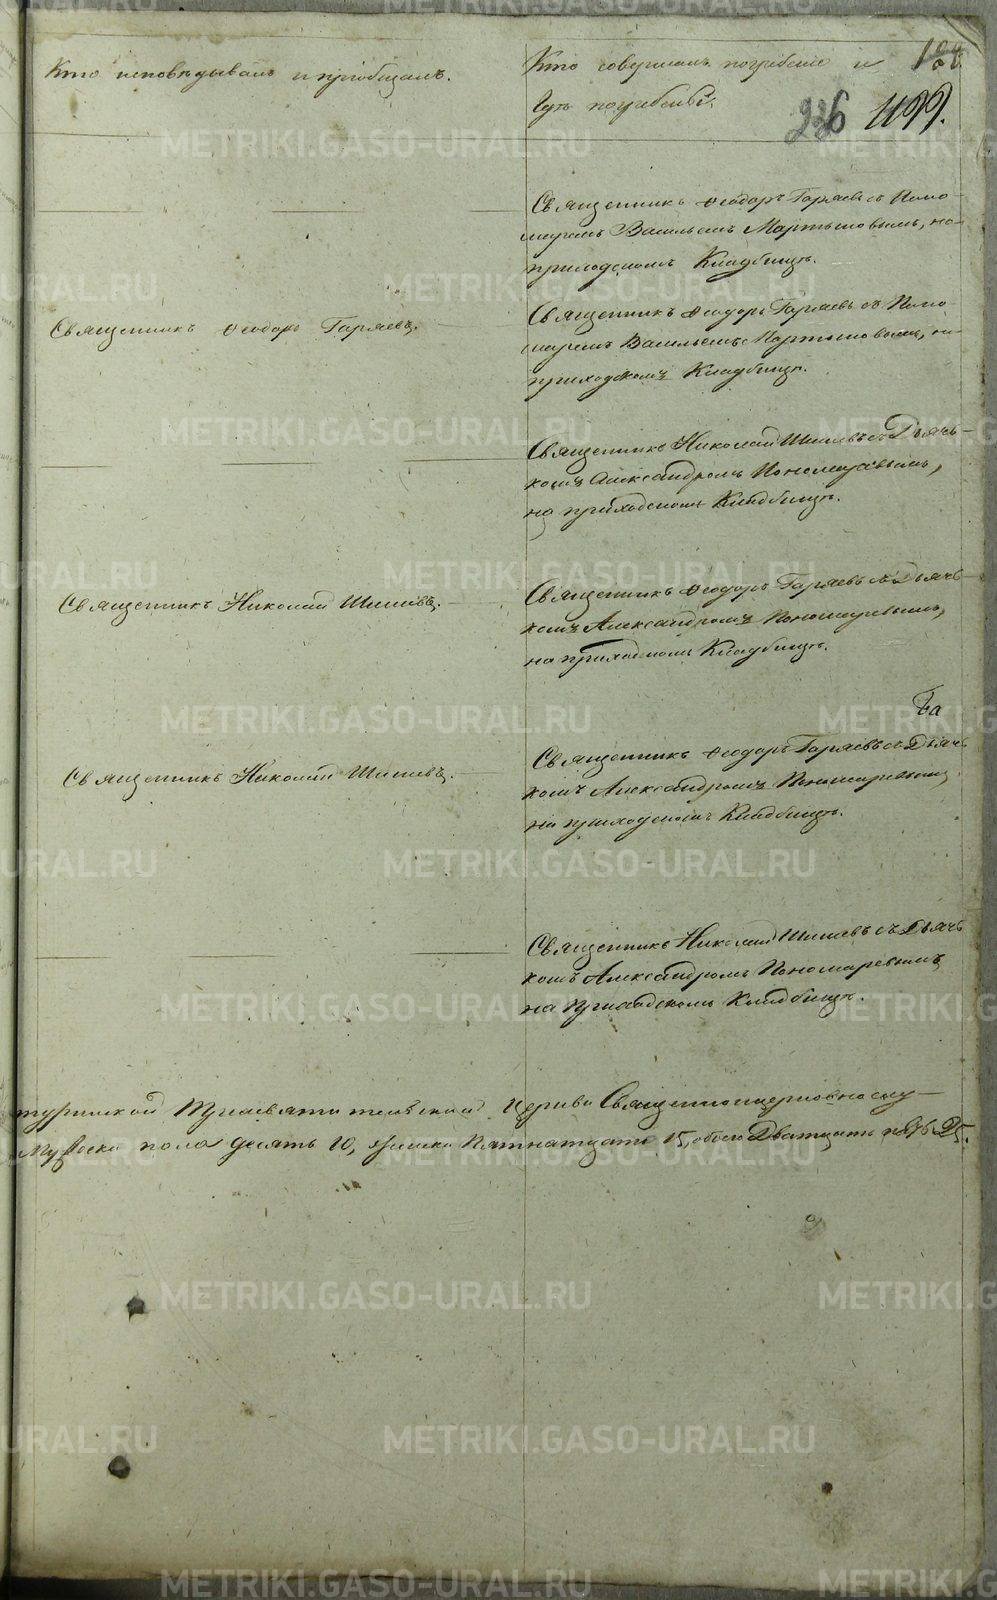 Кто исповѣдывалъ и пріобщалъ.
Кто совершалъ погребеніе и
гдѣ погребены.
226 499.
Священникъ Ѳеодоръ Гаряевъ съ Поно-
маремъ Васильемъ Мартыновымъ, на
приходскомъ Кладбищѣ.
Священникъ Ѳеодоръ Гаряевъ.
Священникъ Ѳеодоръ Гаряевъ съ Поно-
маремъ Васильемъ Мартыновымъ, на
приходскомъ Кладбищѣ.
Священникъ Николай Шишевъ съ Дьяч-
комъ Александромъ Пономаревымъ,
на приходскомъ Кладбищѣ.
Священникъ Николай Шишевъ.
Священникъ Ѳеодоръ Гаряевъ съ Дьяч-
комъ Александромъ Пономаревымъ,
на приходскомъ Кладбищѣ.
Ба
Священникъ Николай Шишевъ.
Священникъ Ѳеодоръ Гаряевъ съ Дьяч-
комъ Александромъ Пономаревымъ
на приходскомъ Кладбищѣ.
Священникъ Николай Шишевъ съ Дьяч-
комъ Александромъ Пономаревымъ
на приходскомъ Кладбищѣ.
туринской Церкви Священноцерковнослу-
Мужеска пола десять 10, женска Пятнатцать 15, обоего Дватцать пять 25.
METRIKI.GASO-URAL.RU